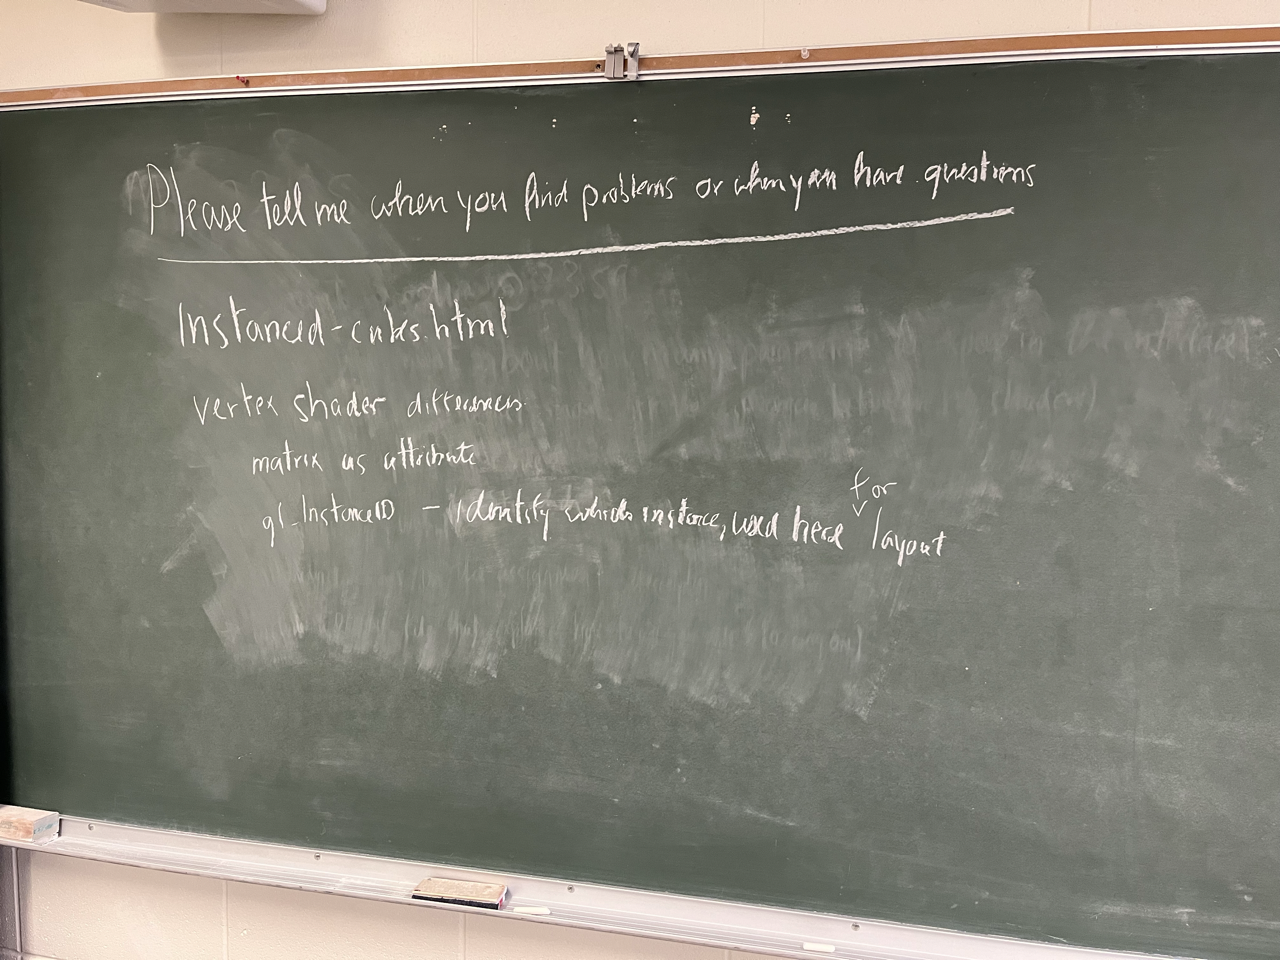 Please tell me when you find problems or when you have questions
Instanced-cubes.html
vertex shader differences
matrix as attribute
gl_InstanceID - identify which instance, used here for layout